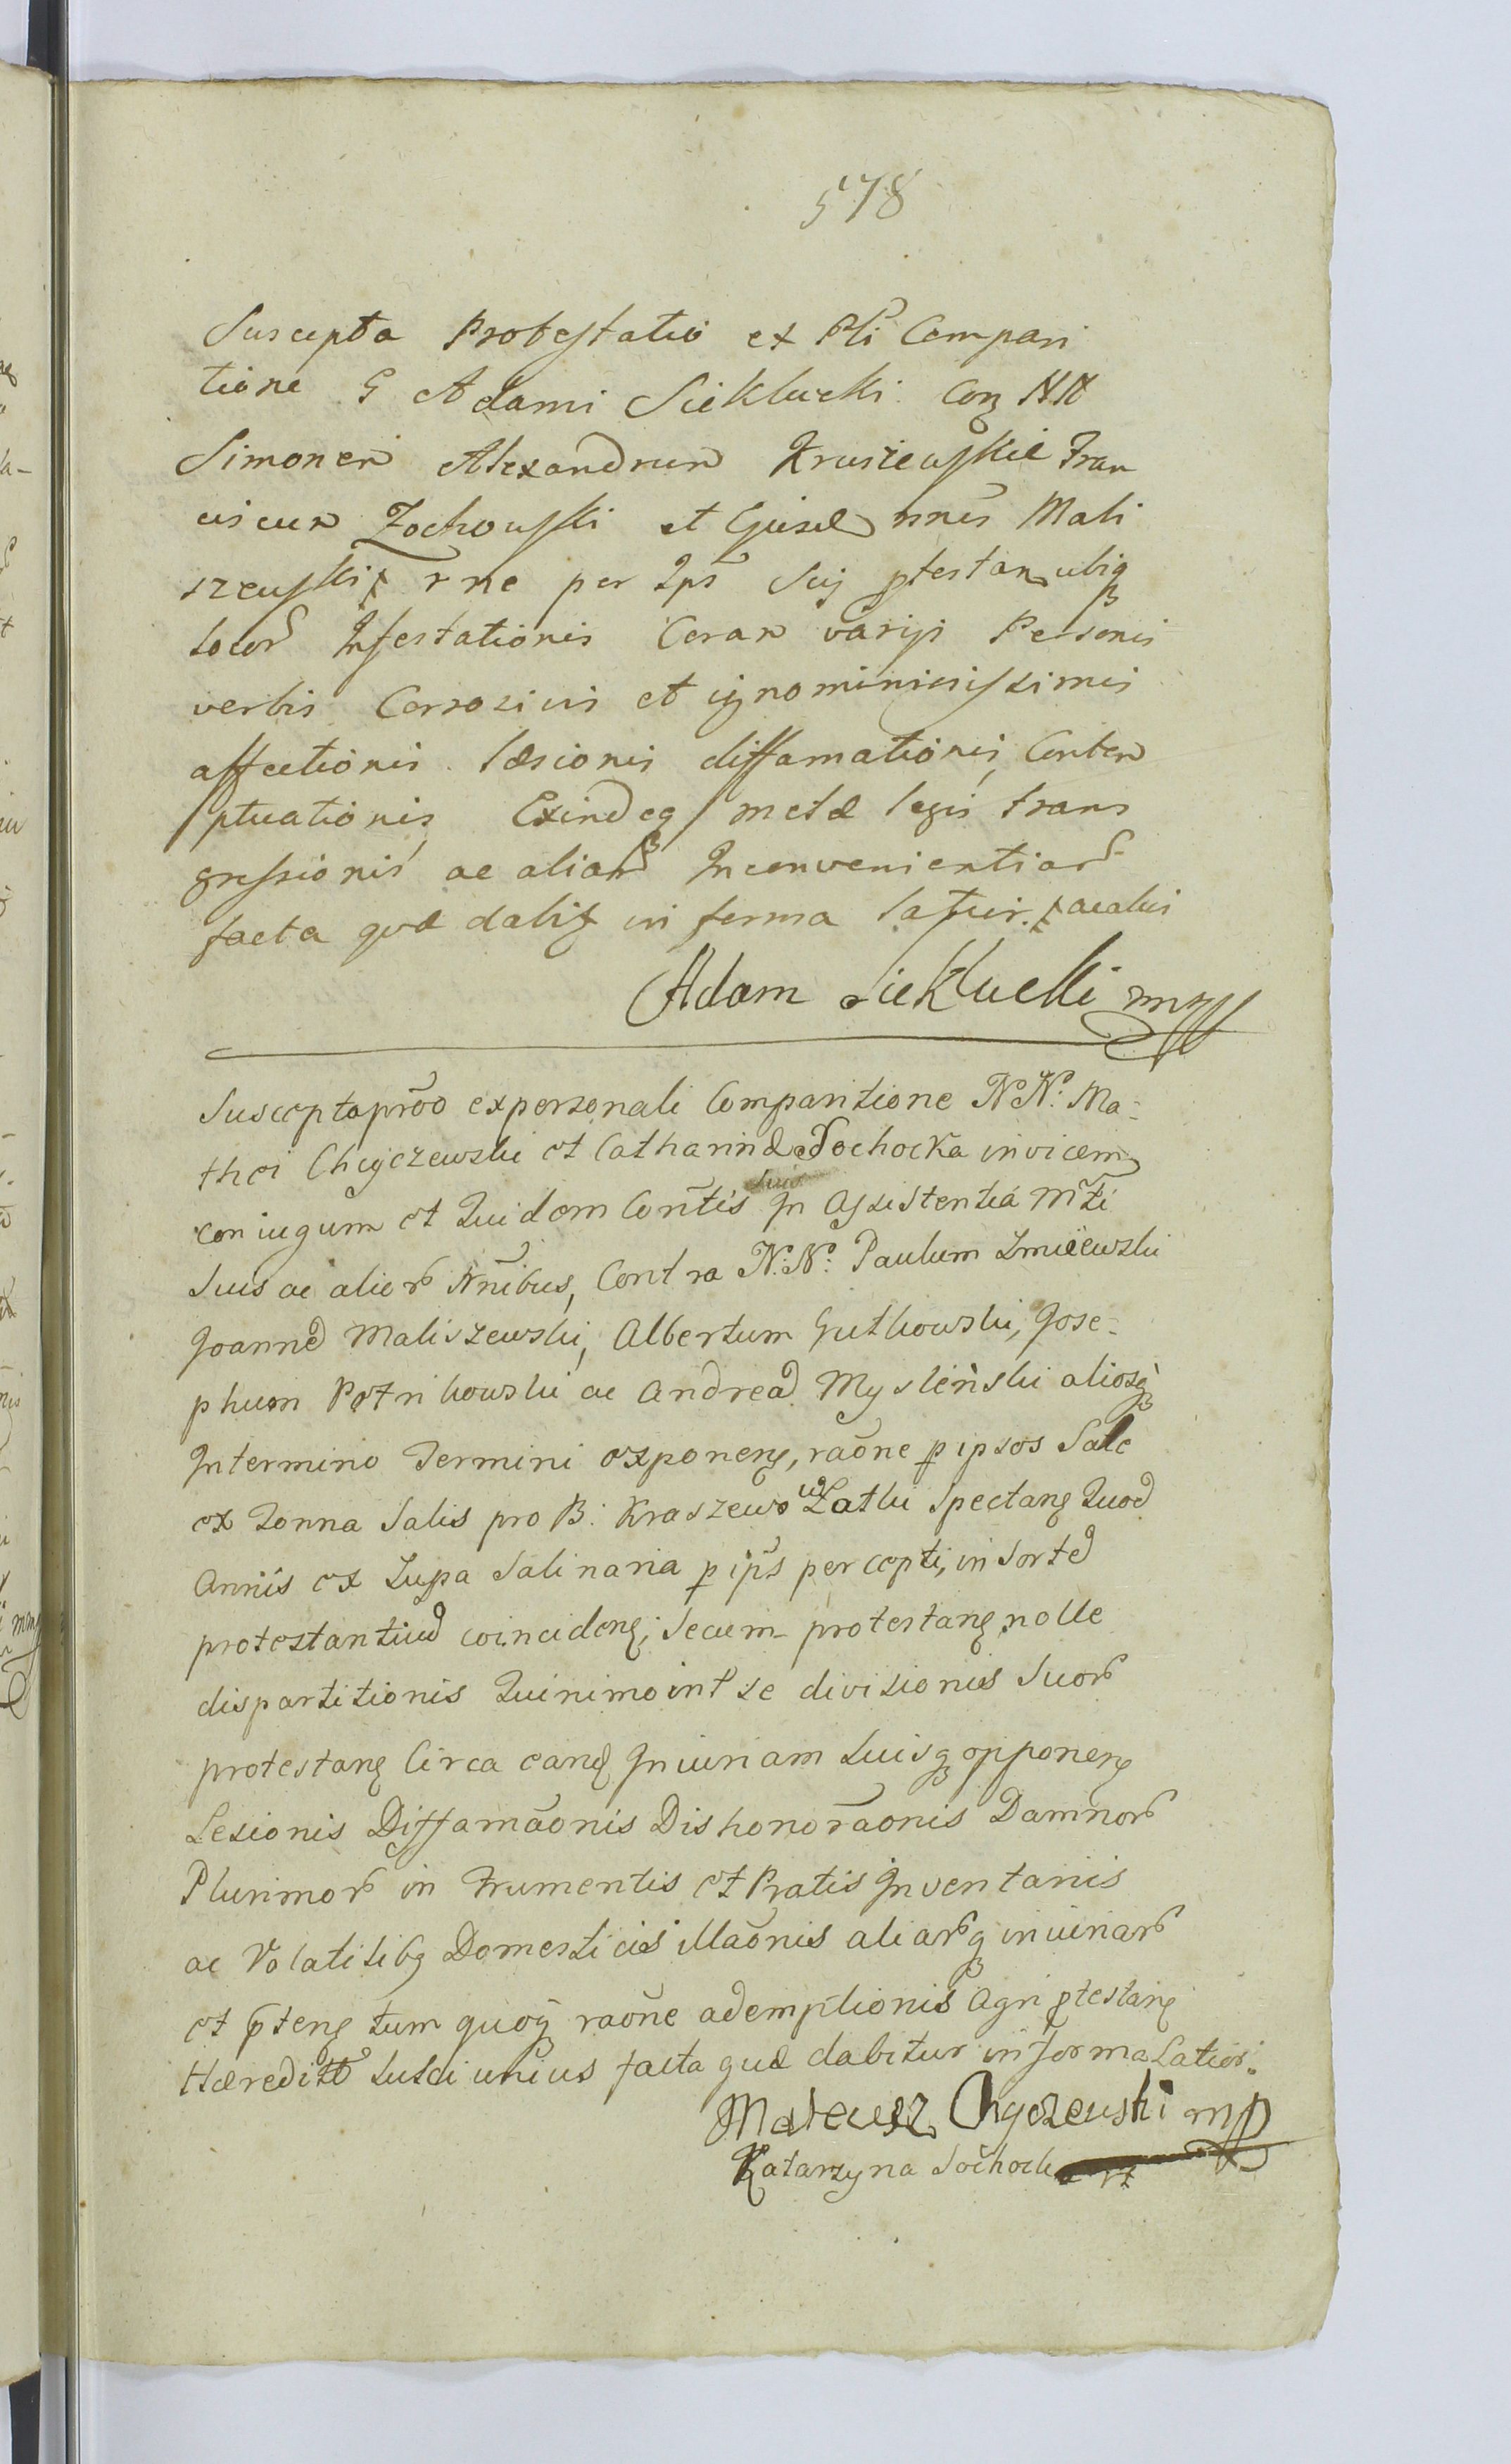 578
Suscepta Protestatio ex Pli Compari
tione G Adami Sieklucki Con NN
Simonem Alexandrum Krusiewskie Fran
ciscum Zochowski et Nnis Mali
szewski rne per Ips Suj ptestan ubiq
locor Infestationis Coram varijs Personis
verbis Corrosivis et ignominiosissimis
affectionis læsionis diffamationis Contem
ptuationis Exindeq metæ legis trans
gressionis ac aliar Inconvenientiar
facta quæ dabit in forma latiori
Adam Sieklucki mpp
Suscepta prõo ex personali Comparitione N.N: Ma-
thei Chyczewski et Catharinæ Sochocka invicem
coniugum et Quidem Contis In Assistentia Mti
Suis
Suis ac alior Nnibus, Contra N:N: Paulum Zmiiewski
Joannem Maliszewski, Albertum Gutkowski, Jose-
phum Potrikowski ac Andream Mysleński aliosq
In termino Termini exponen, raõne p ipsos Sale
ex Tonna Salis pro B: Kraszewo Łatki Spectan Quod
Annis ex Zupa Salinaria p ips percepti, in Sortem
protestantium coinciden; Secum protestan nolle
dispartitionis Quinimo int se divisionis Suor
protestan Circa eand Iniuriam Suisq opponen
Lesionis Diffamaõnis Dishonoraõnis Damnor
Plurimor in Frumentis et Pratis Inventariis
ac Volatilibq Domesticis illaõnis aliarq iniuriar
et pten tum quoq raõne ademptionis Agri ptestan
Hæredit unius facta quæ dabitur in forma Latior:
Mateusz Chyczewski mp
Katarzyna Sochocka